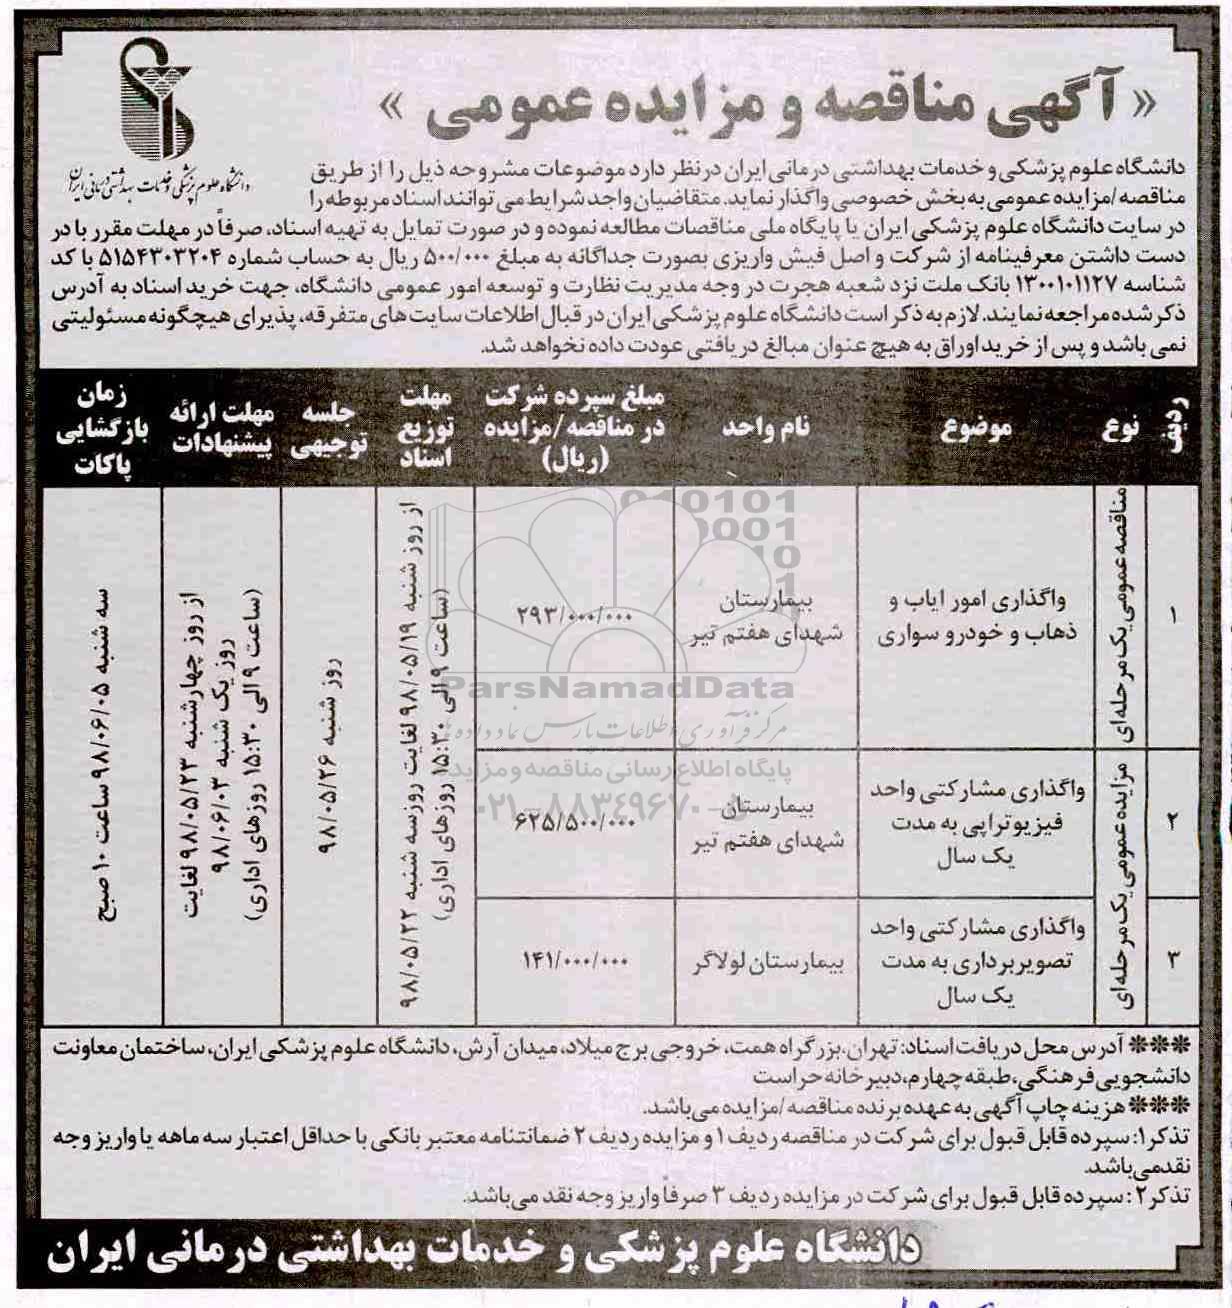 « آگهی مناقصه و مزایده عمومی »
دانشگاه علوم پزشکی و خدمات بهداشتی درمانی ایران
دانشگاه علوم پزشکی و خدمات بهداشتی درمانی ایران در نظر دارد موضوعات مشروحه ذیل را از طریق
مناقصه/مزایده عمومی به بخش خصوصی واگذار نماید. متقاضیان واجد شرایط می توانند اسناد مربوطه را
در سایت دانشگاه علوم پزشکی ایران یا پایگاه ملی مناقصات مطالعه نموده و در صورت تمایل به تهیه اسناد، صرفاً در مهلت مقرر با در
دست داشتن معرفینامه از شرکت و اصل فیش واریزی بصورت جداگانه به مبلغ ۵۰۰/۰۰۰ ریال به حساب شماره ۵۱۵۴۳۰۳۲۰۴ با کد
شناسه ۱۳۰۰۱۰۱۱۲۷ بانک ملت نزد شعبه هجرت در وجه مدیریت نظارت و توسعه امور عمومی دانشگاه، جهت خرید اسناد به آدرس
ذکر شده مراجعه نمایند. لازم به ذکر است دانشگاه علوم پزشکی ایران در قبال اطلاعات سایت های متفرقه، پذیرای هیچگونه مسئولیتی
نمی باشد و پس از خرید اوراق به هیچ عنوان مبالغ دریافتی عودت داده نخواهد شد.
ردیف
نوع
موضوع
نام واحد
مبلغ سپرده شرکت
در مناقصه/مزایده
(ریال)
مهلت
توزیع
اسناد
جلسه
توجیهی
مهلت ارائه
پیشنهادات
زمان
بازگشایی
پاکات
۱
مناقصه عمومی یک مرحله ای
واگذاری امور ایاب و
ذهاب و خودرو سواری
بیمارستان
شهدای هفتم تیر
۲۹۳/۰۰۰/۰۰۰
از روز شنبه ۹۸/۰۵/۱۹ لغایت روز سه شنبه ۹۸/۰۵/۲۲
(ساعت ۹ الی ۱۵:۳۰ روزهای اداری)
روز شنبه ۹۸/۰۵/۲۶
از روز چهارشنبه ۹۸/۰۵/۲۳ لغایت
روز یک شنبه ۹۸/۰۶/۰۳
(ساعت ۹ الی ۱۵:۳۰ روزهای اداری)
سه شنبه ۹۸/۰۶/۰۵ ساعت ۱۰ صبح
۲
مزایده عمومی یک مرحله ای
واگذاری مشارکتی واحد
فیزیوتراپی به مدت
یک سال
بیمارستان
شهدای هفتم تیر
۶۲۵/۵۰۰/۰۰۰
۳
واگذاری مشارکتی واحد
تصویربرداری به مدت
یک سال
بیمارستان لولاگر
۱۴۱/۰۰۰/۰۰۰
ParsNamadData
مرکز فرآوری اطلاعات پارس نماد داده ها
پایگاه اطلاع رسانی مناقصه و مزایده
۰۲۱-۸۸۳۴۹۶۷۰-۵
*** آدرس محل دریافت اسناد: تهران، بزرگراه همت، خروجی برج میلاد، میدان آرش، دانشگاه علوم پزشکی ایران، ساختمان معاونت
دانشجویی فرهنگی، طبقه چهارم، دبیرخانه حراست
*** هزینه چاپ آگهی به عهده برنده مناقصه/مزایده می باشد.
تذکر ۱: سپرده قابل قبول برای شرکت در مناقصه ردیف ۱ و مزایده ردیف ۲ ضمانتنامه معتبر بانکی با حداقل اعتبار سه ماهه یا واریز وجه
نقد می باشد.
تذکر ۲: سپرده قابل قبول برای شرکت در مزایده ردیف ۳ صرفاً واریز وجه نقد می باشد.
دانشگاه علوم پزشکی و خدمات بهداشتی درمانی ایران